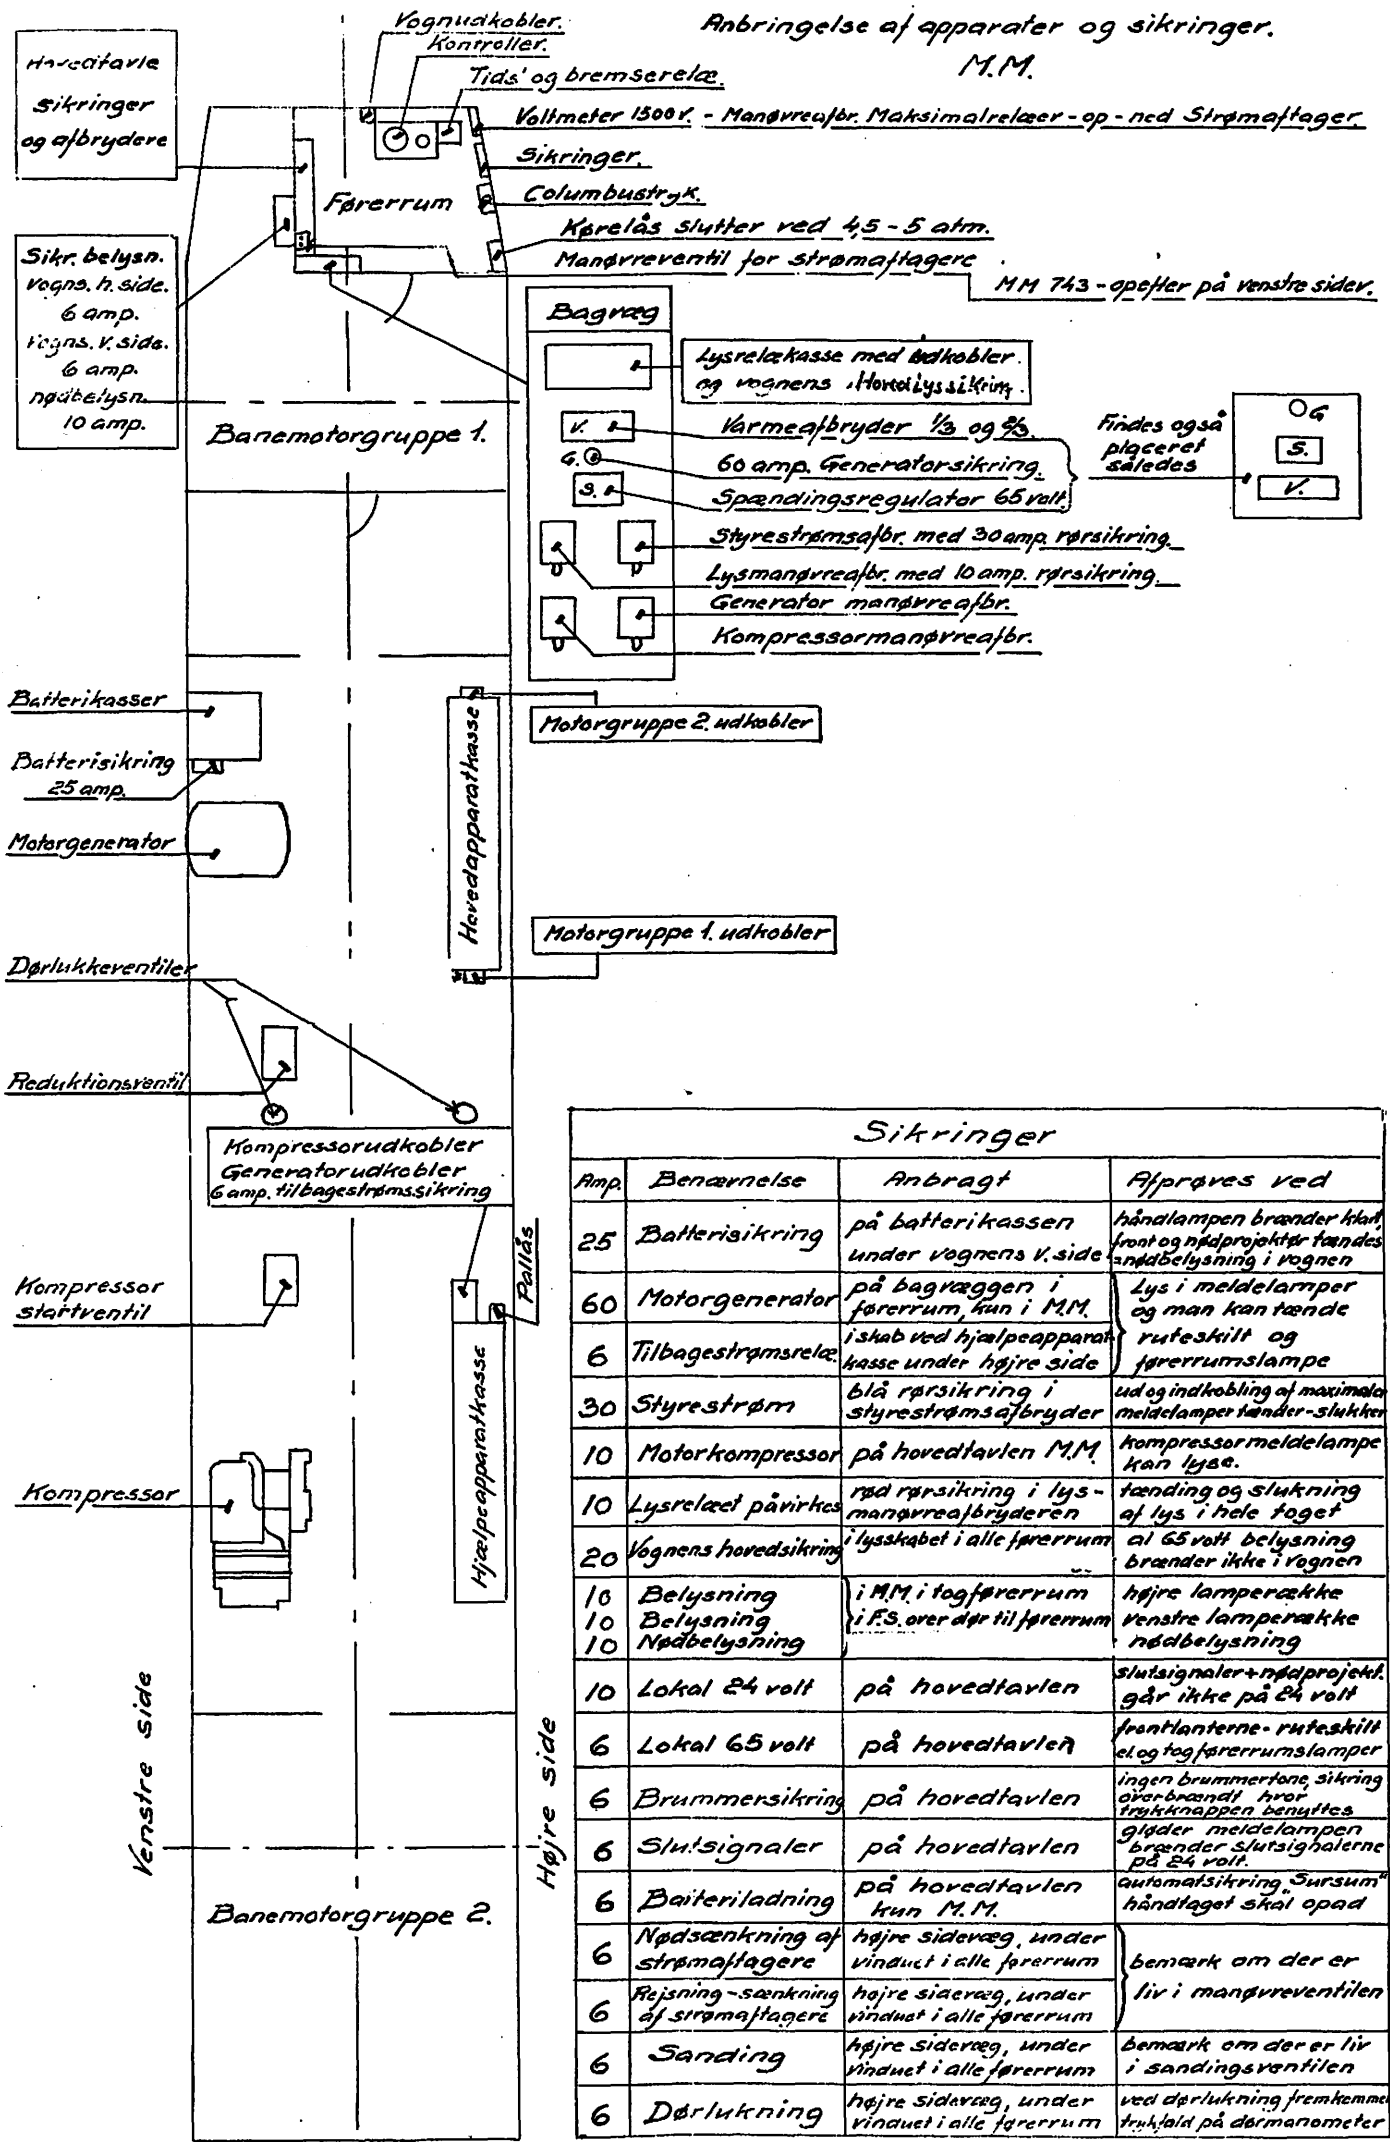 Anbringelse af apparater og sikringer.
M.M.
Hovedtavle
sikringer
og afbrydere
Vognudkobler.
Kontroller.
Tids' og bremserelæ.
Voltmeter 1500 v. - Manøvreafbr. Maksimalrelæer - op - ned Strømaftager.
Sikringer.
Columbustryk.
Kørelås slutter ved 4,5 - 5 atm.
Manøvreventil for strømaftagere
MM 743 - opefter på venstre sidev.
Førerrum
Sikr. belysn.
vogns. h. side.
6 amp.
vogns. v. side.
6 amp.
nødbelysn.
10 amp.
Banemotorgruppe 1.
Bagvæg
Lysrelækasse med udkobler.
og vognens Hovedlyssikring.
V.
Varmeafbryder 1/3 og 2/3.
G.
60 amp. Generatorsikring.
S.
Spændingsregulator 65 volt.
Findes også
placeret
således
G
S.
V.
Styrestrømsafbr. med 30 amp. rørsikring.
Lysmanøvreafbr. med 10 amp. rørsikring.
Generator manøvreafbr.
Kompressormanøvreafbr.
Batterikasser
Batterisikring
25 amp.
Motorgenerator
Hovedapparatkasse
Motorgruppe 2. udkobler
Motorgruppe 1. udkobler
Dørlukkeventiler
Reduktionsventil
Kompressorudkobler
Generatorudkobler
6 amp. tilbagestrømssikring
Pallås
Kompressor
startventil
Hjælpeapparatkasse
Kompressor
Venstre side
Højre side
Banemotorgruppe 2.
Sikringer
Amp. Benævnelse Anbragt Afprøves ved
25 Batterisikring på batterikassen under vognens v. side håndlampen brænder klart, front og nødprojektør tændes = nødbelysning i vognen
60 Motorgenerator på bagvæggen i førerrum, kun i M.M. Lys i meldelamper og man kan tænde ruteskilt og førerrumslampe
6 Tilbagestrømsrelæ i skab ved hjælpeapparatkasse under højre side
30 Styrestrøm blå rørsikring i styrestrømsafbryder ud og indkobling af maximaler meldelamper tænder - slukker
10 Motorkompressor på hovedtavlen M.M. kompressormeldelampe kan lyse.
10 Lysrelæet påvirkes rød rørsikring i lys- manøvreafbryderen tænding og slukning af lys i hele toget
20 Vognens hovedsikring i lysskabet i alle førerrum al 65 volt belysning brænder ikke i vognen
10 Belysning i M.M. i togførerrum højre lamperække
10 Belysning i F.S. over dør til førerrum venstre lamperække
10 Nødbelysning nødbelysning
10 Lokal 24 volt på hovedtavlen slutsignaler + nødprojekt. går ikke på 24 volt
6 Lokal 65 volt på hovedtavlen frontlanterne - ruteskilt el. og togførerrumslamper
6 Brummersikring på hovedtavlen ingen brummertone, sikring overbrændt hvor trykknappen benyttes
6 Slutsignaler på hovedtavlen gløder meldelampen brænder slutsignalerne på 24 volt.
6 Batteriladning på hovedtavlen kun M.M. automatsikring „Sursum" håndtaget skal opad
6 Nødsænkning af strømaftagere højre sidevæg, under vinduet i alle førerrum bemærk om der er liv i manøvreventilen
6 Rejsning - sænkning af strømaftagere højre sidevæg, under vinduet i alle førerrum
6 Sanding højre sidevæg, under vinduet i alle førerrum bemærk om der er liv i sandingsventilen
6 Dørlukning højre sidevæg, under vinduet i alle førerrum ved dørlukning fremkommer trykfald på dørmanometer